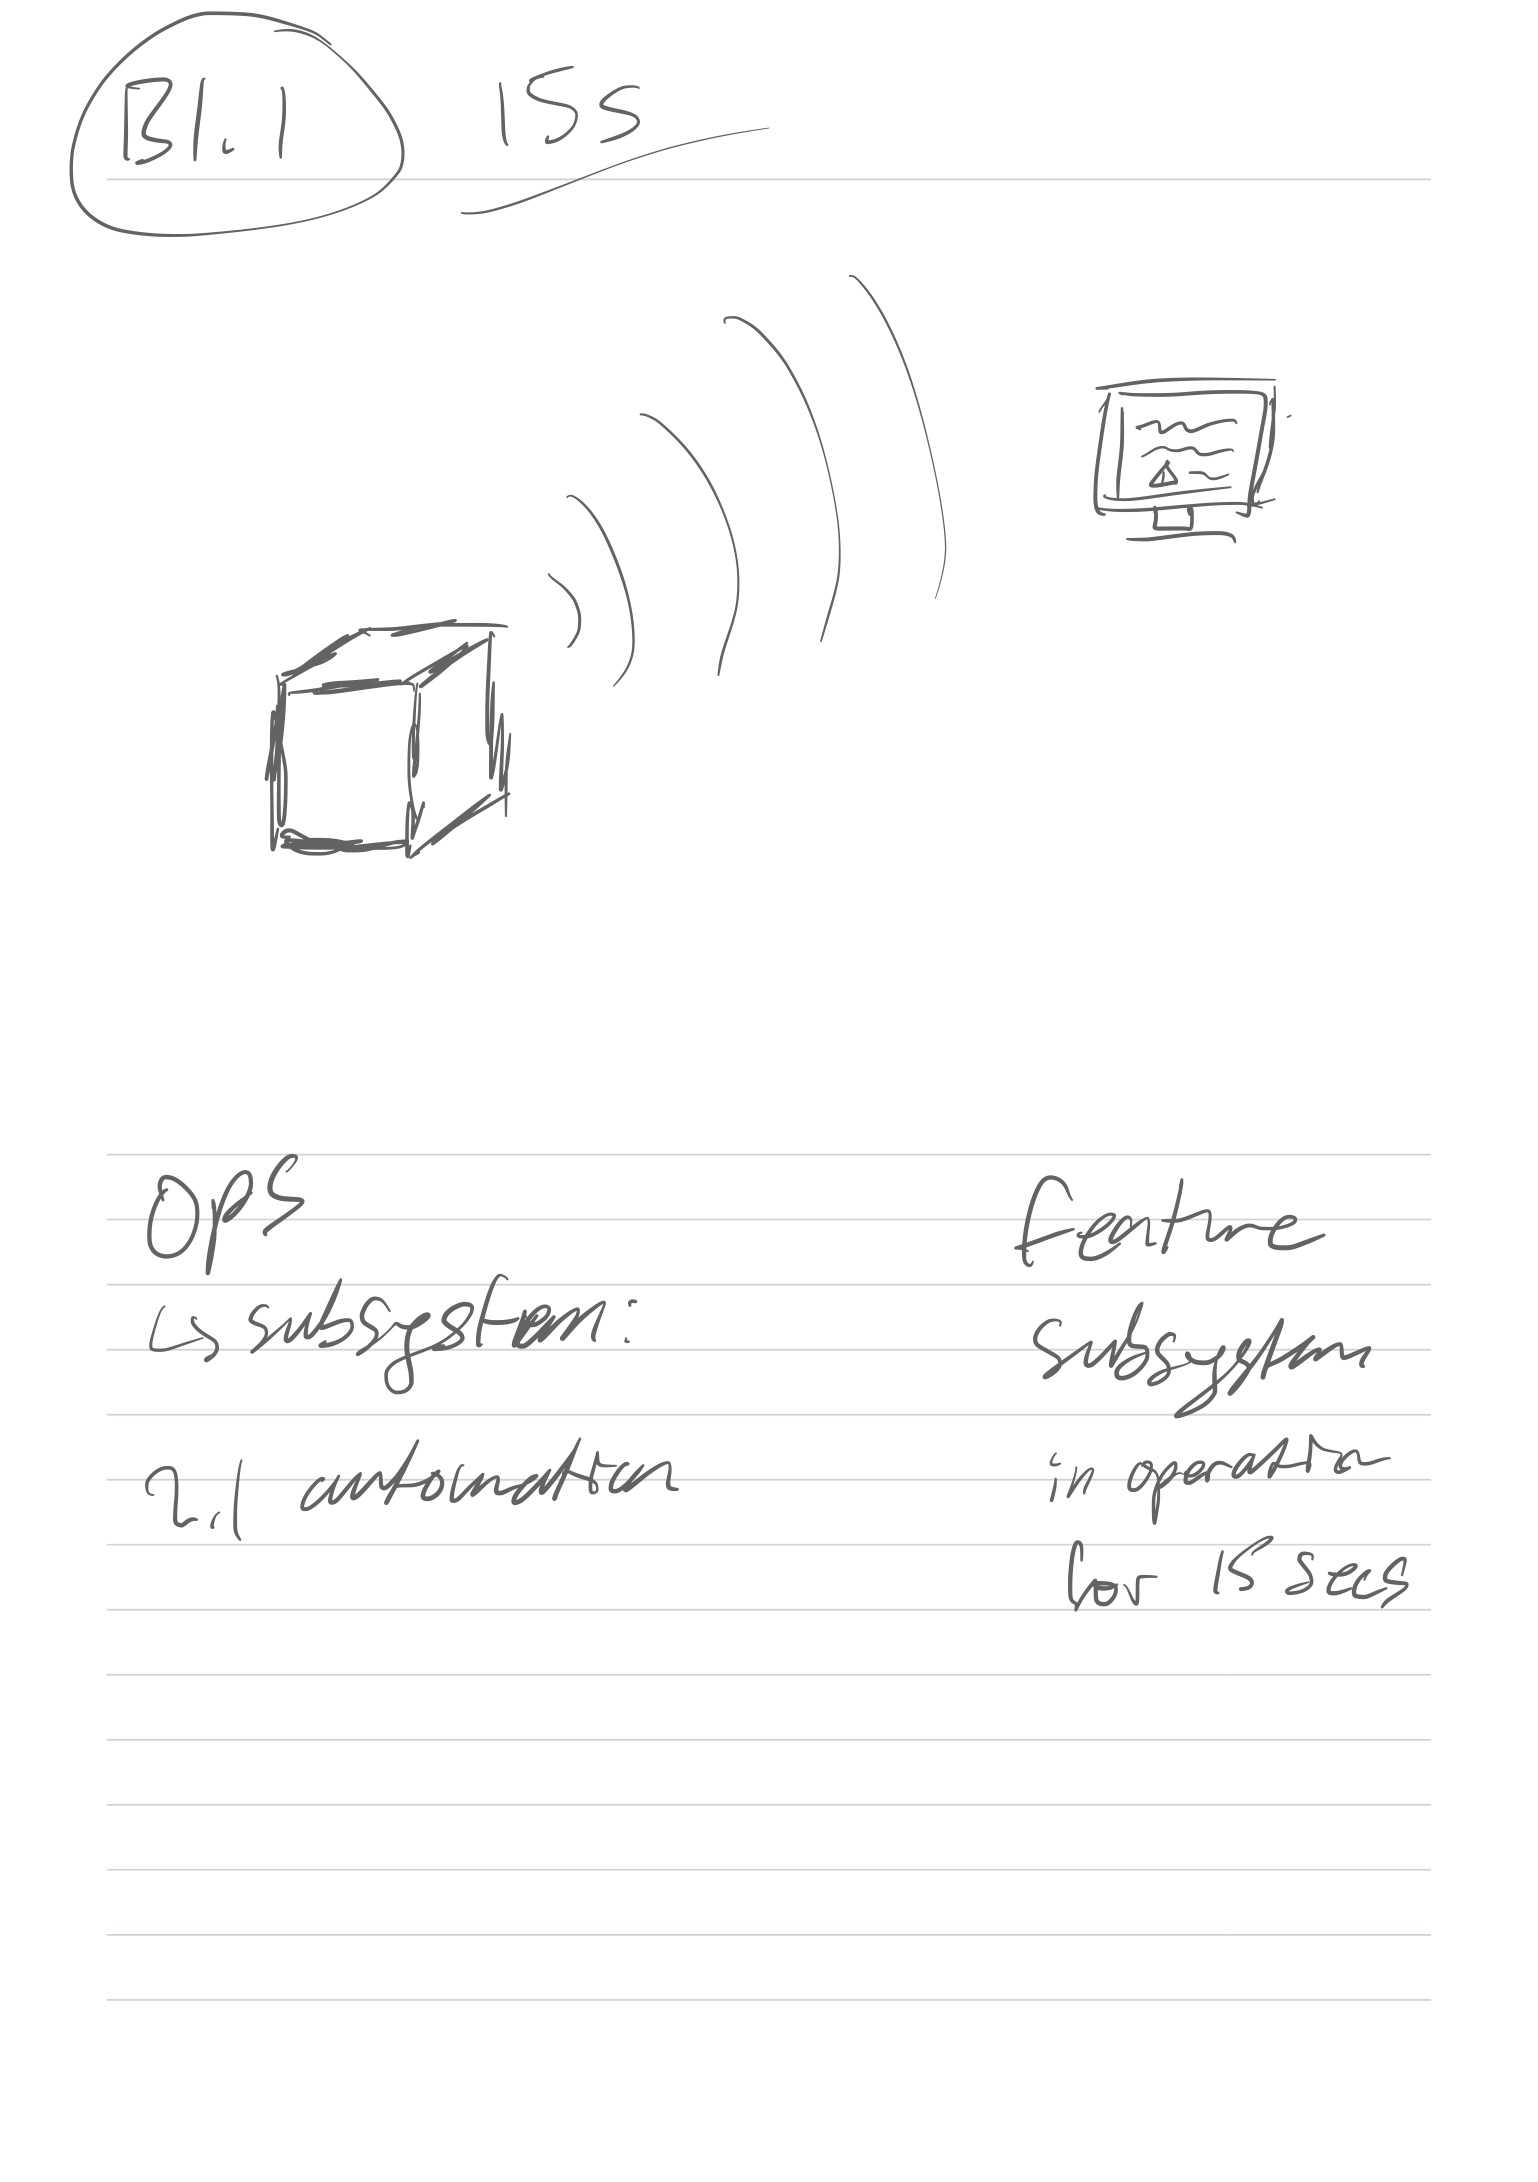 B1.1 15s
OPS
↳ subsystem:
2.1 automation
Feature
subsystem
in operation
for 15 secs